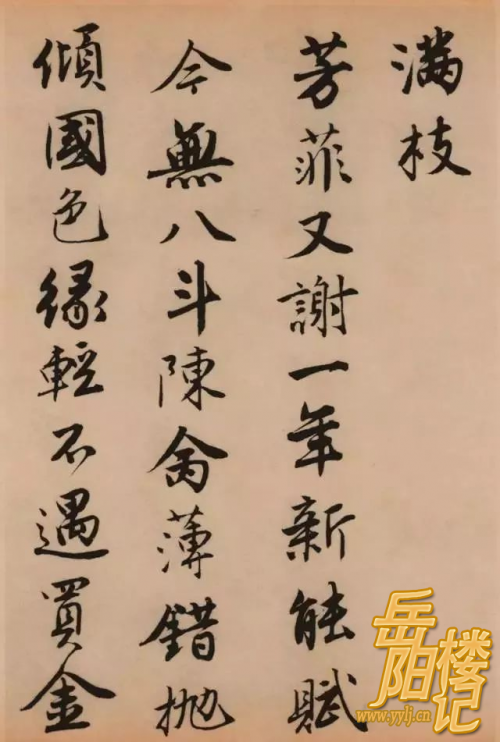 滿枝
芳菲又謝一年新能賦
今無八斗陳命薄錯抛
傾國色緣輕不遇買金
岳阳楼记
www.yylj.cn